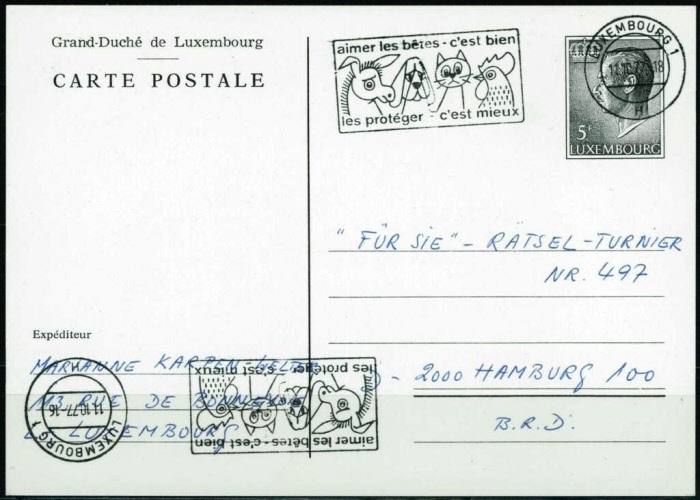 Grand-Duché de Luxembourg
CARTE POSTALE
aimer les bêtes - c'est bien
les protéger - c'est mieux
LUXEMBOURG 1
5F
LUXEMBOURG
"FÜR SIE" - RÄTSEL-TURNIER
NR. 497
Expéditeur
MARIANNE
113 RUE DE
LUXEMBOURG
D - 2000 HAMBURG 100
B.R.D.
les protéger - c'est mieux
aimer les bêtes - c'est bien
11.10.77-16
LUXEMBOURG 1